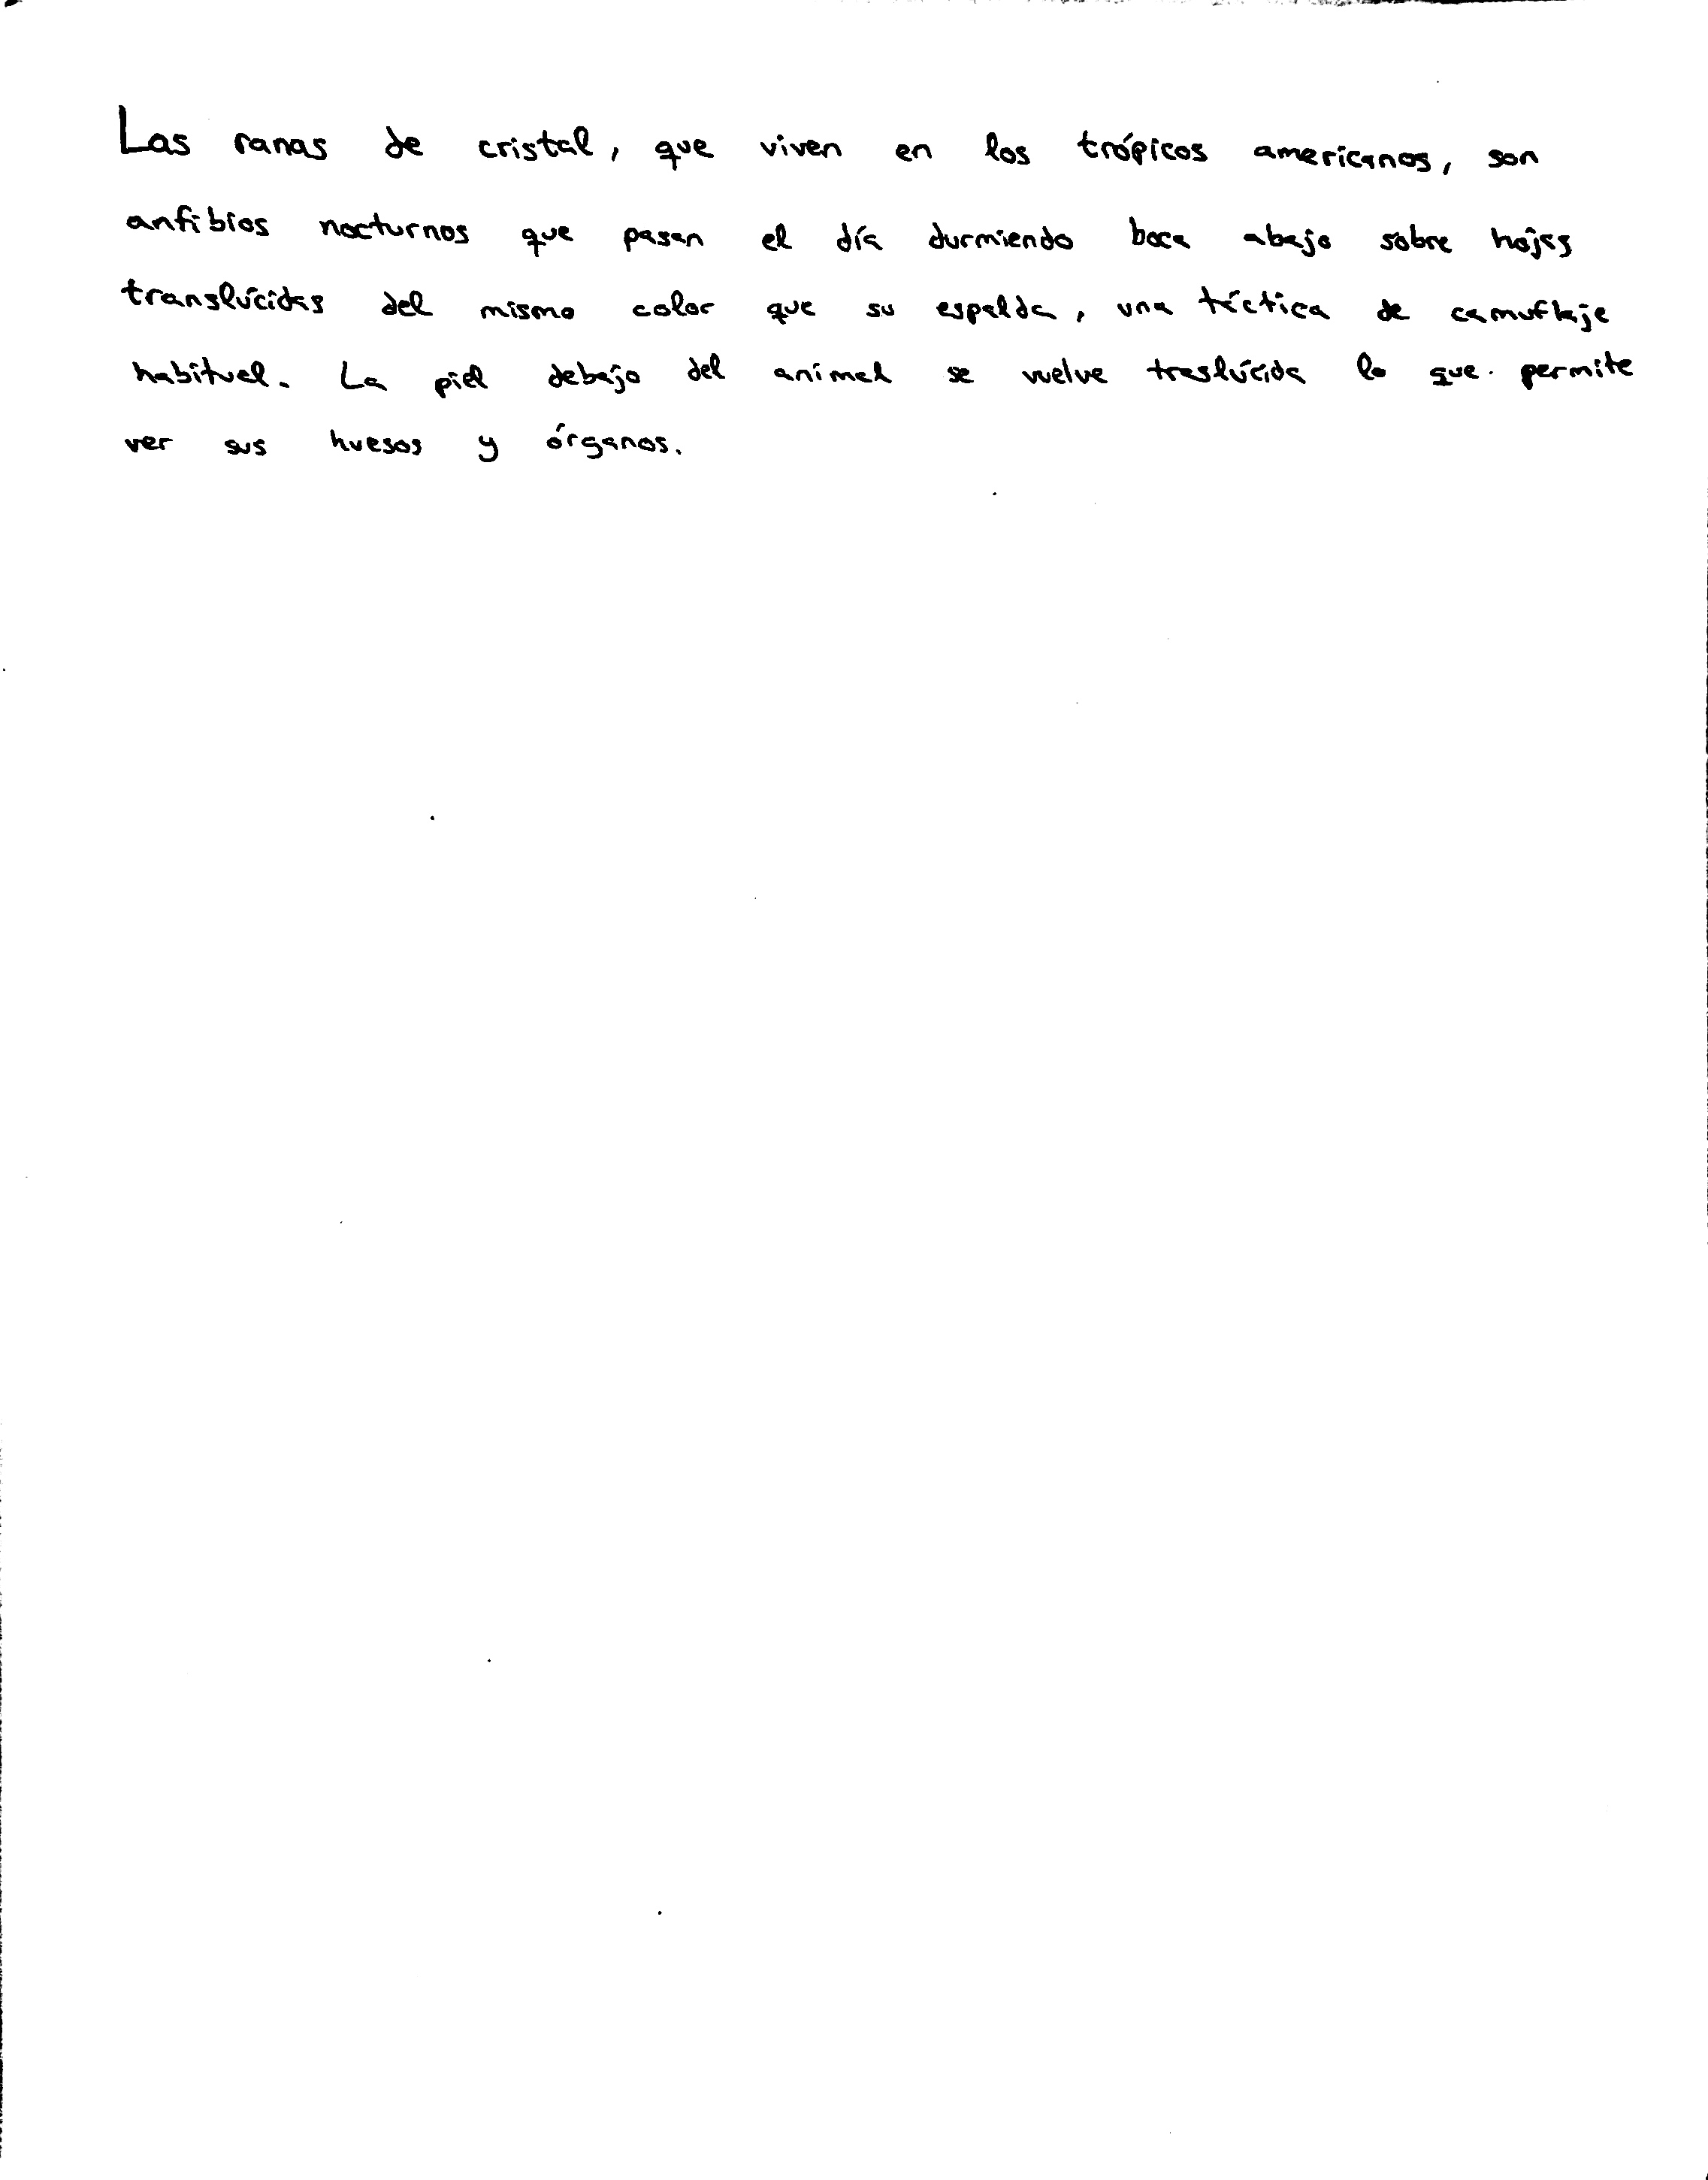 Las ranas de cristal, que viven en los trópicos americanos, son
anfibios nocturnos que pasan el día durmiendo boca abajo sobre hojas
translúcidas del mismo color que su espalda, una táctica de camuflaje
habitual. La piel debajo del animal se vuelve traslúcida lo que permite
ver sus huesos y órganos.